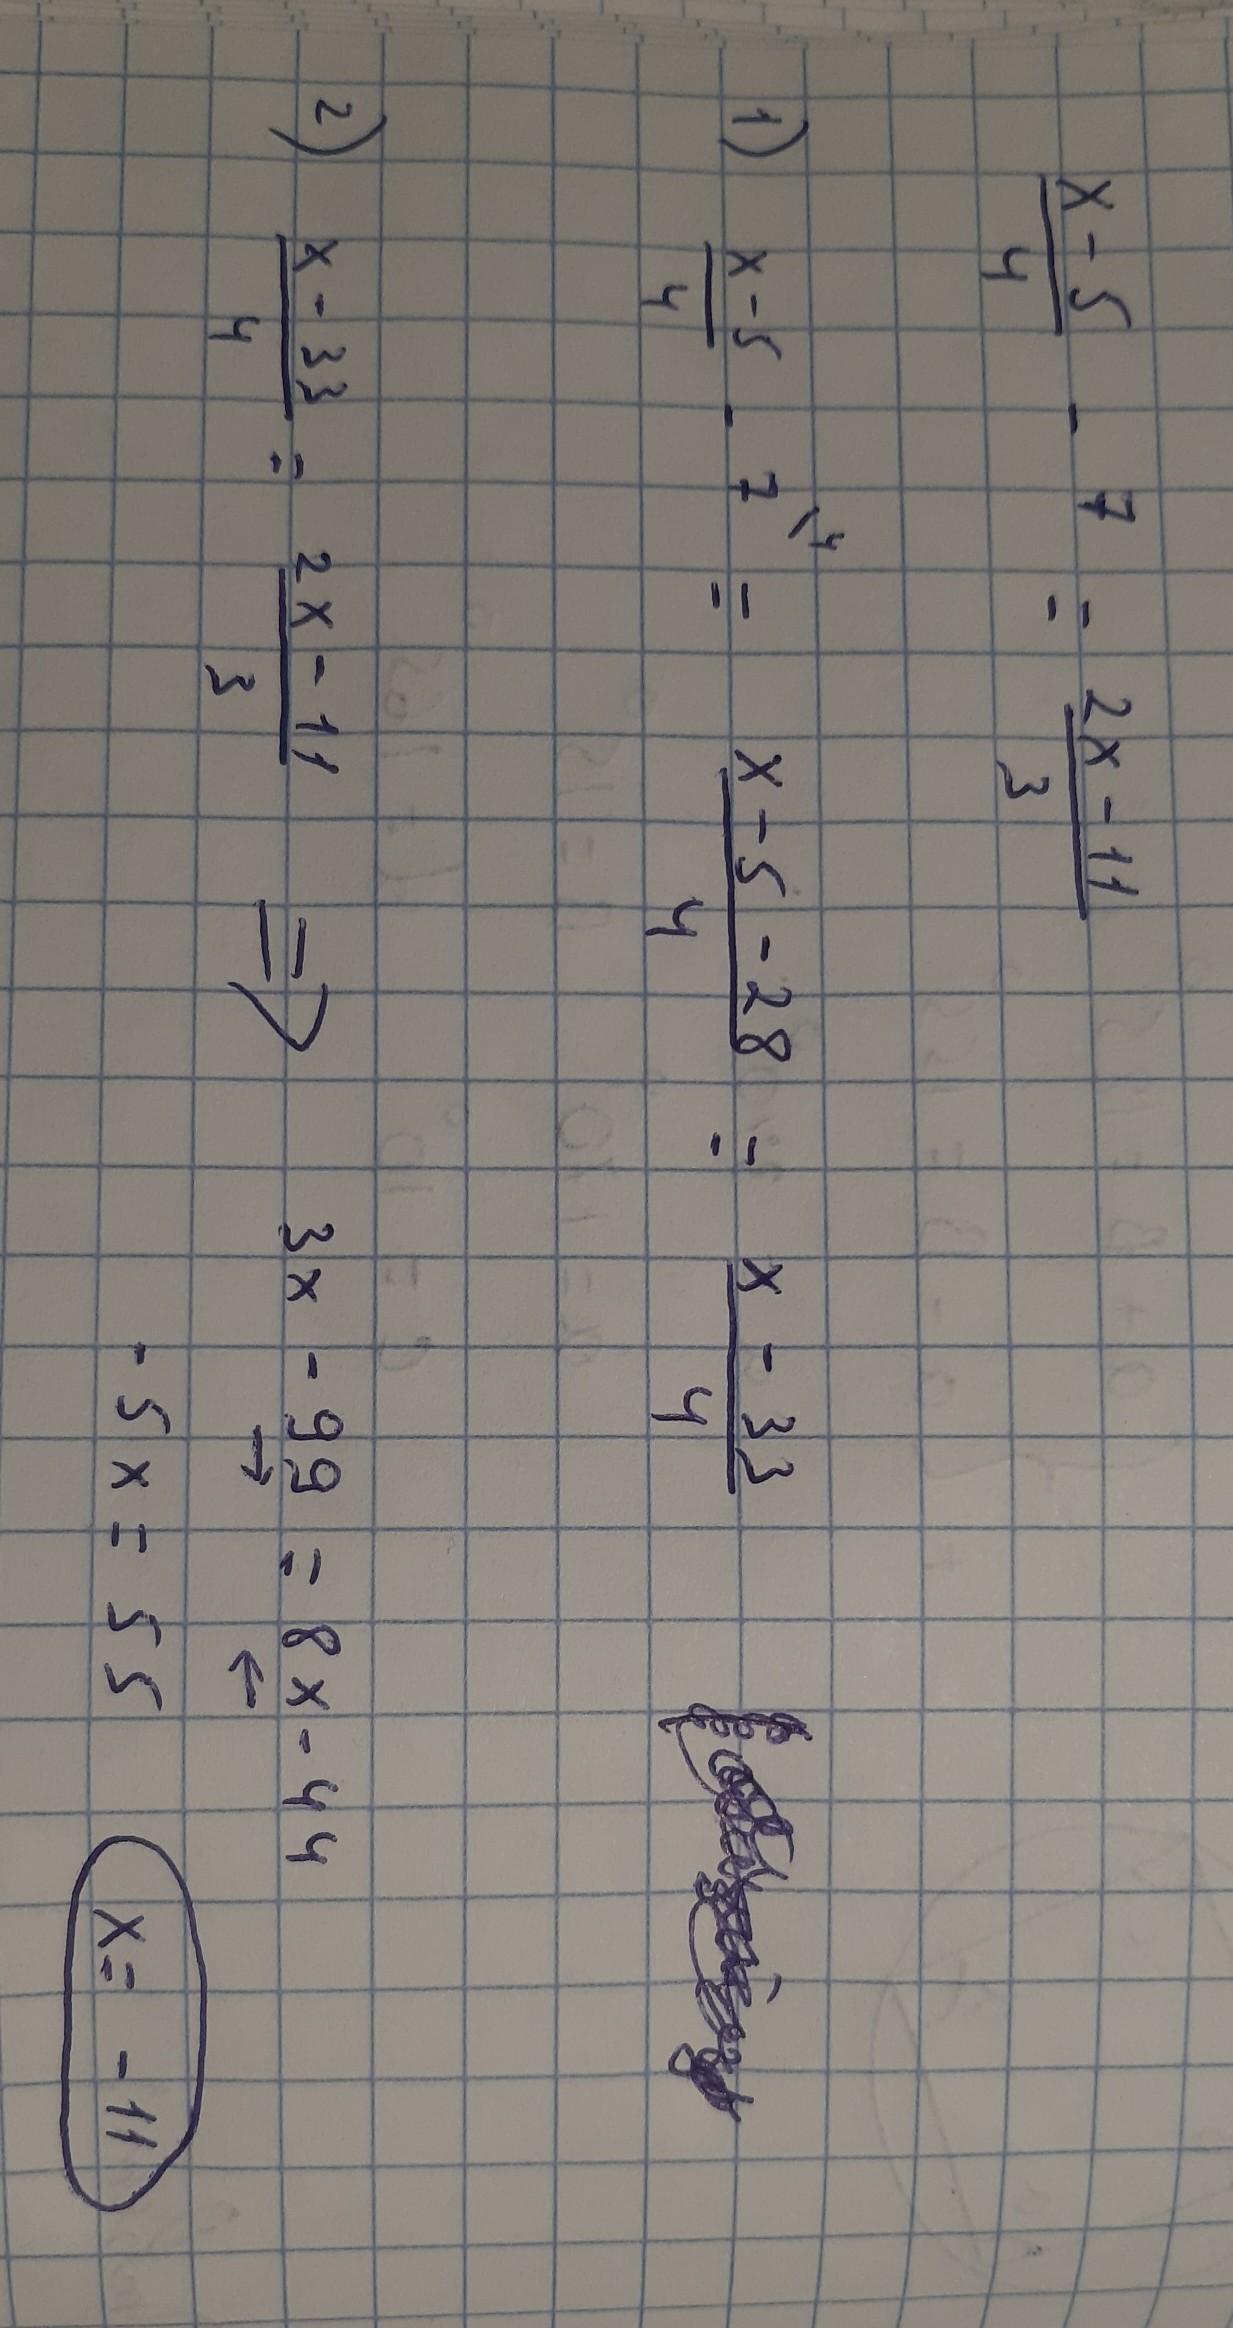 x-5/4 - 7 = 2x-11/3
1) x-5/4 - 7\4 = x-5-28/4 = x-33/4
2) x-33/4 = 2x-11/3 => 3x - 99 = 8x - 44
→ ←
-5x = 55 x = -11